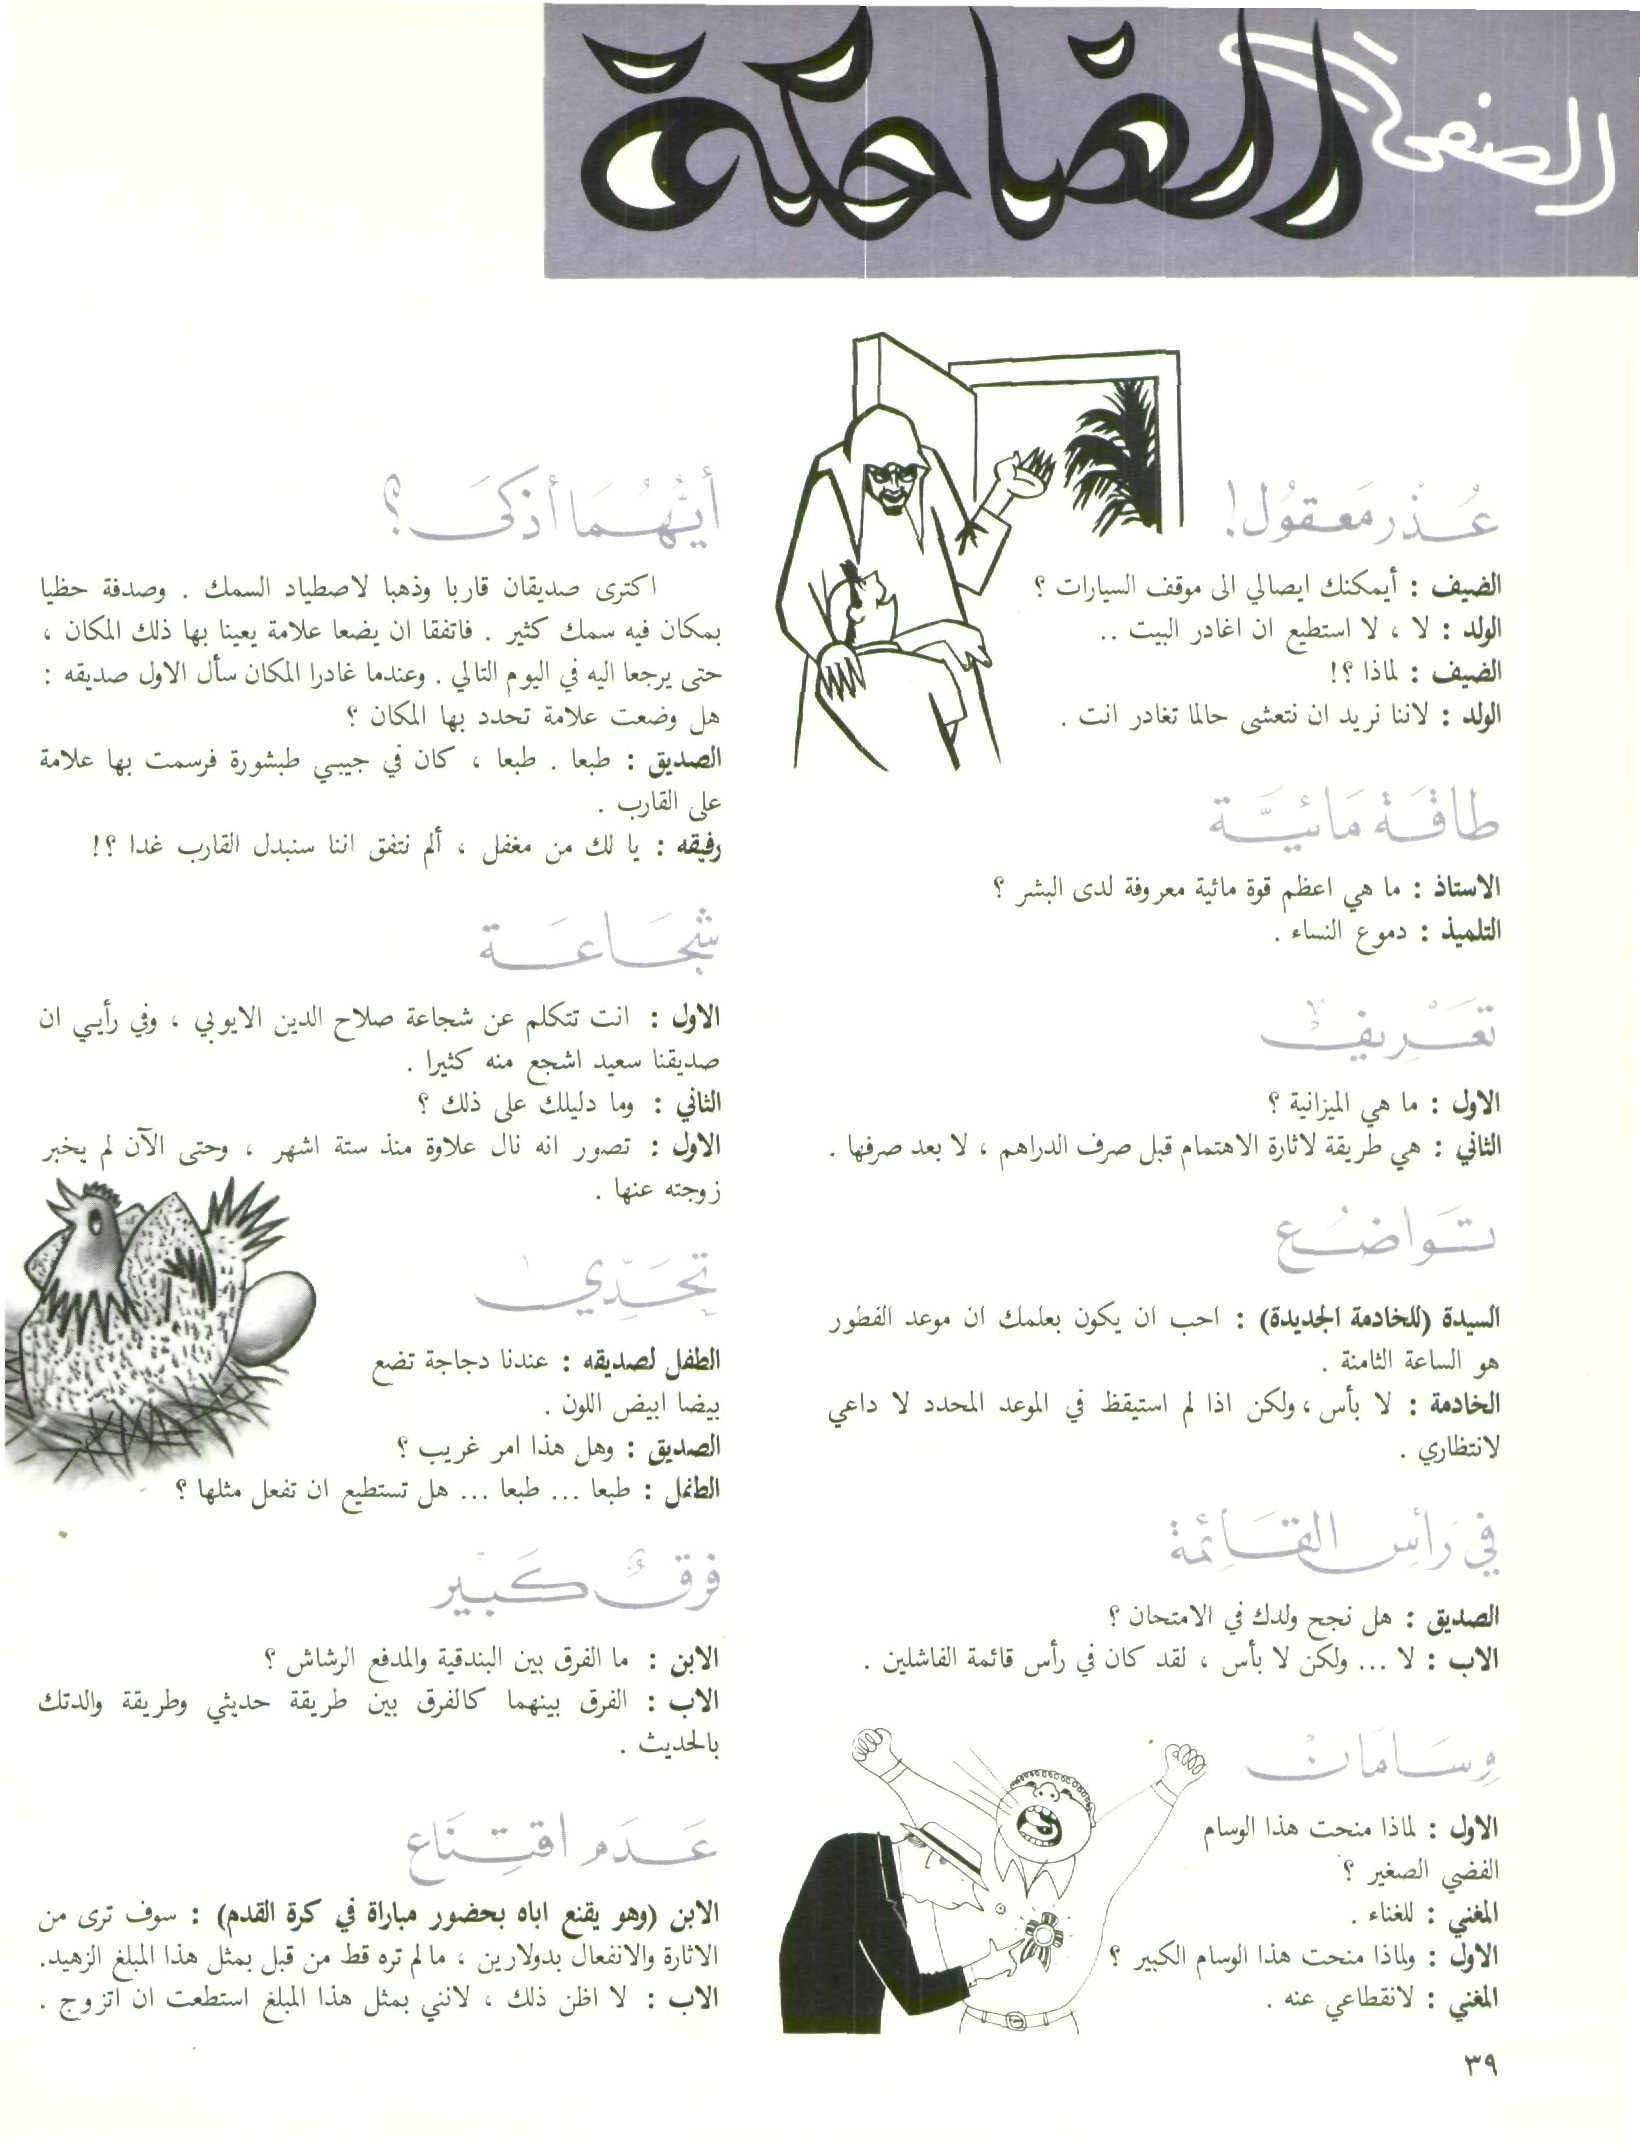 الصفحة
الضاحكة
عُذْر مَعقُول!
الضيف : أيمكنك ايصالي الى موقف السيارات ؟
الولد : لا ، لا استطيع ان اغادر البيت ..
الضيف : لماذا ؟!
الولد : لاننا نريد ان نتعشى حالما تغادر انت .
طاقَة مَائيَّة
الاستاذ : ما هي اعظم قوة مائية معروفة لدى البشر ؟
التلميذ : دموع النساء .
تعَرْيفٌ
الاول : ما هي الميزانية ؟
الثاني : هي طريقة لاثارة الاهتمام قبل صرف الدراهم ، لا بعد صرفها .
تَواضُع
السيدة (للخادمة الجديدة) : احب ان يكون بعلمك ان موعد الفطور
هو الساعة الثامنة .
الخادمة : لا بأس ، ولكن اذا لم استيقظ في الموعد المحدد لا داعي
لانتظاري .
في رَأسِ القَائِمة
الصديق : هل نجح ولدك في الامتحان ؟
الاب : لا ... ولكن لا بأس ، لقد كان في رأس قائمة الفاشلين .
وِسَامَانْ
الاول : لماذا منحت هذا الوسام
الفضي الصغير ؟
المغني : للغناء .
الاول : ولماذا منحت هذا الوسام الكبير ؟
المغني : لانقطاعي عنه .
أيُّهُمَا أذكىَ ؟
اكترى صديقان قاربا وذهبا لاصطياد السمك . وصدفة حظيا
بمكان فيه سمك كثير . فاتفقا ان يضعا علامة يعينا بها ذلك المكان ،
حتى يرجعا اليه في اليوم التالي . وعندما غادرا المكان سأل الاول صديقه :
هل وضعت علامة تحدد بها المكان ؟
الصديق : طبعا . طبعا ، كان في جيبي طبشورة فرسمت بها علامة
على القارب .
رفيقه : يا لك من مغفل ، ألم نتفق اننا سنبدل القارب غدا ؟!
شجَاعَة
الاول : انت تتكلم عن شجاعة صلاح الدين الايوبي ، وفي رأيي ان
صديقنا سعيد اشجع منه كثيرا .
الثاني : وما دليلك على ذلك ؟
الاول : تصور انه نال علاوة منذ ستة اشهر ، وحتى الآن لم يخبر
زوجته عنها .
تحَدِّي
الطفل لصديقه : عندنا دجاجة تضع
بيضا ابيض اللون .
الصديق : وهل هذا امر غريب ؟
الطفل : طبعا ... طبعا ... هل تستطيع ان تفعل مثلها ؟
فرقٌ كَبيْر
الابن : ما الفرق بين البندقية والمدفع الرشاش ؟
الاب : الفرق بينهما كالفرق بين طريقة حديثي وطريقة والدتك
بالحديث .
عَدَم اقتِنَاع
الابن (وهو يقنع اباه بحضور مباراة في كرة القدم) : سوف ترى من
الاثارة والانفعال بدولارين ، ما لم تره قط من قبل بمثل هذا المبلغ الزهيد.
الاب : لا اظن ذلك ، لانني بمثل هذا المبلغ استطعت ان اتزوج .
٣٩